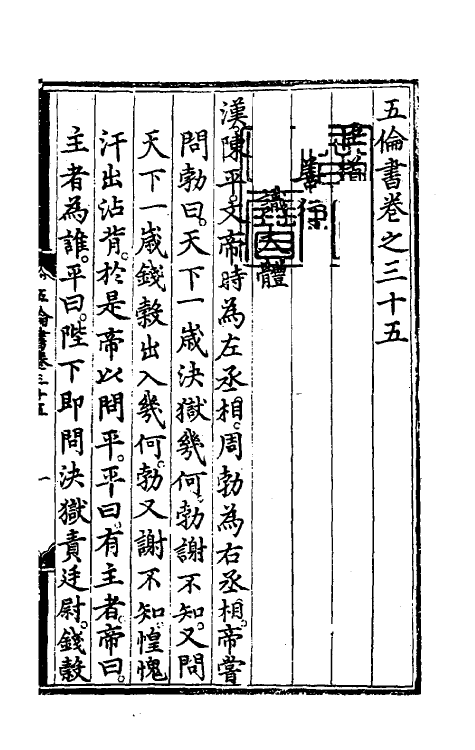 五倫書卷之三十五
臣道
善行
識大體
漢陳平文帝時為左丞相周勃為右丞相帝嘗
問勃曰天下一歲決獄幾何勃謝不知又問
天下一歲錢穀出入幾何勃又謝不知惶愧
汗出沾背於是帝以問平平曰有主者帝曰
主者為誰平曰陛下即問決獄責廷尉錢穀
五倫書卷三十五
一